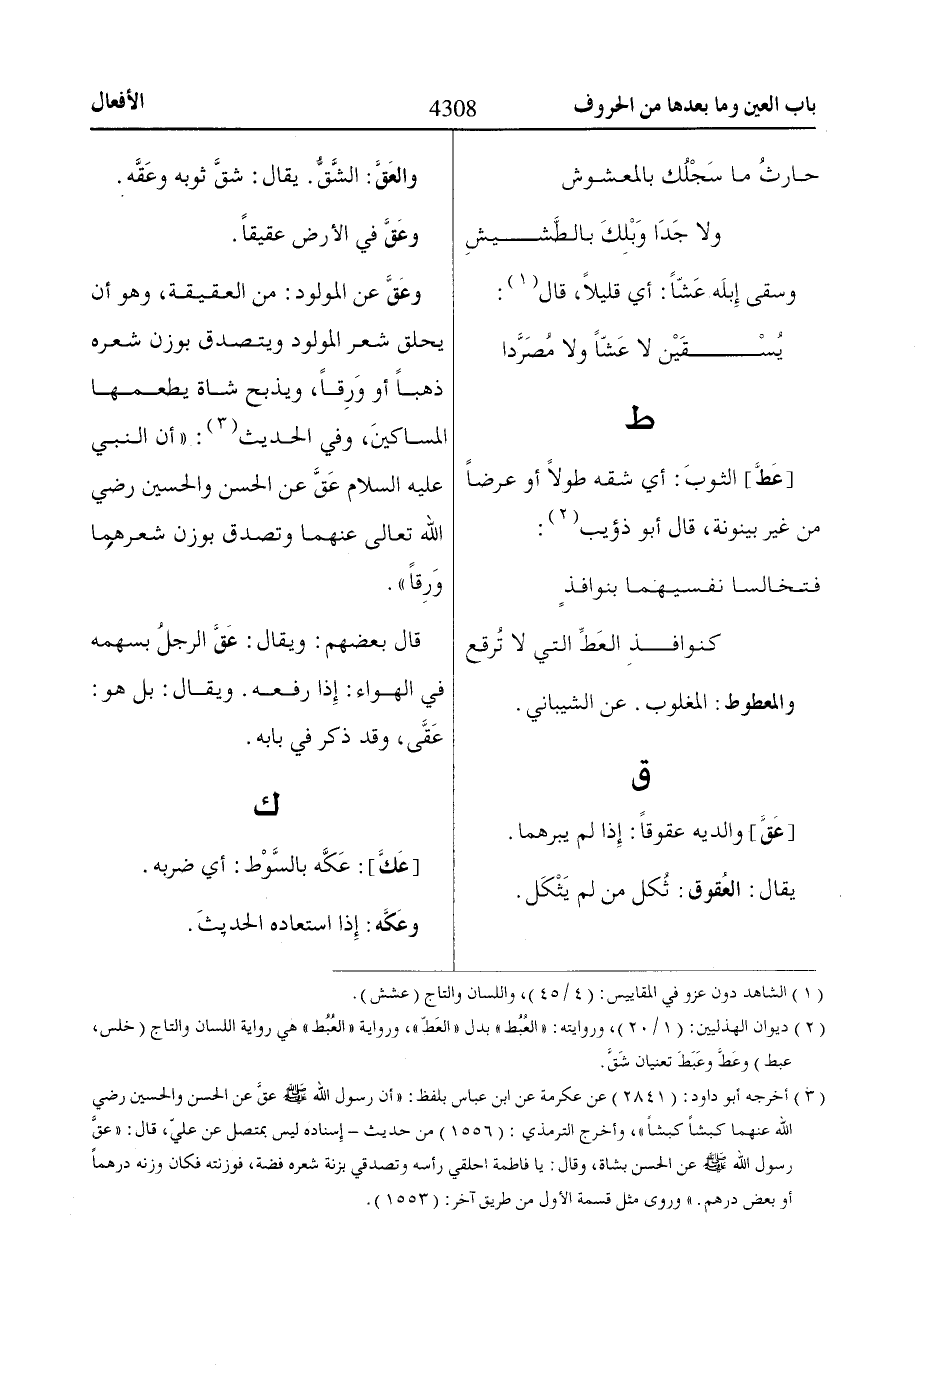 باب العين وما بعدها من الحروف
4308
الأفعال
حارثُ ما سَجْلُك بالمعشوش
ولا جَدَا وَبْلِكَ بالطَّشيشِ
وسقى إبلَه عَشّاً: أي قليلاً، قال(١):
يُسْقَيْن لا عَشّاً ولا مُصَرَّدا
ط
[عَطَّ] الثوبَ: أي شقه طولاً أو عرضاً
من غير بينونة، قال أبو ذؤيب(٢):
فتخالسا نفسيهما بنوافذٍ
كنوافذِ العَطِّ التي لا تُرقع
والمعطوط: المغلوب. عن الشيباني.
ق
[عَقَّ] والديه عقوقاً: إذا لم يبرهما.
يقال: العُقوق: ثُكل من لم يَثْكَل.
والعَقَّ: الشَّقُّ. يقال: شقَّ ثوبه وعَقَّه.
وعَقَّ في الأرض عقيقاً.
وعَقَّ عن المولود: من العقيقة، وهو أن
يحلق شعر المولود ويتصدق بوزن شعره
ذهباً أو وَرِقاً، ويذبح شاة يطعمها
المساكينَ، وفي الحديث(٣): «أن النبي
عليه السلام عَقَّ عن الحسن والحسين رضي
الله تعالى عنهما وتصدق بوزن شعرهما
وَرِقاً».
قال بعضهم: ويقال: عَقَّ الرجلُ بسهمه
في الهواء: إذا رفعه. ويقال: بل هو:
عَقَّى، وقد ذكر في بابه.
ك
[عَكَّ]: عَكَّه بالسَّوْط: أي ضربه.
وعَكَّه: إذا استعاده الحديثَ.
(١) الشاهد دون عزو في المقاييس: (٤/٤٥)، واللسان والتاج (عشش).
(٢) ديوان الهذليين: (١/٢٠)، وروايته: «العُبُط» بدل «العَطّ»، ورواية «العُبُط» هي رواية اللسان والتاج (خلس،
عبط) وعَطَّ وعَبَطَ تعنيان شَقَّ.
(٣) أخرجه أبو داود: (٢٨٤١) عن عكرمة عن ابن عباس بلفظ: «أن رسول الله ﷺ عقَّ عن الحسن والحسين رضي
الله عنهما كبشاً كبشاً»، وأخرج الترمذي: (١٥٥٦) من حديث – إسناده ليس بمتصل عن عليّ، قال: «عقَّ
رسول الله ﷺ عن الحسن بشاة، وقال: يا فاطمة احلقي رأسه وتصدقي بزنة شعره فضة، فوزنته فكان وزنه درهماً
أو بعض درهم.» وروى مثل قسمة الأول من طريق آخر: (١٥٥٣).